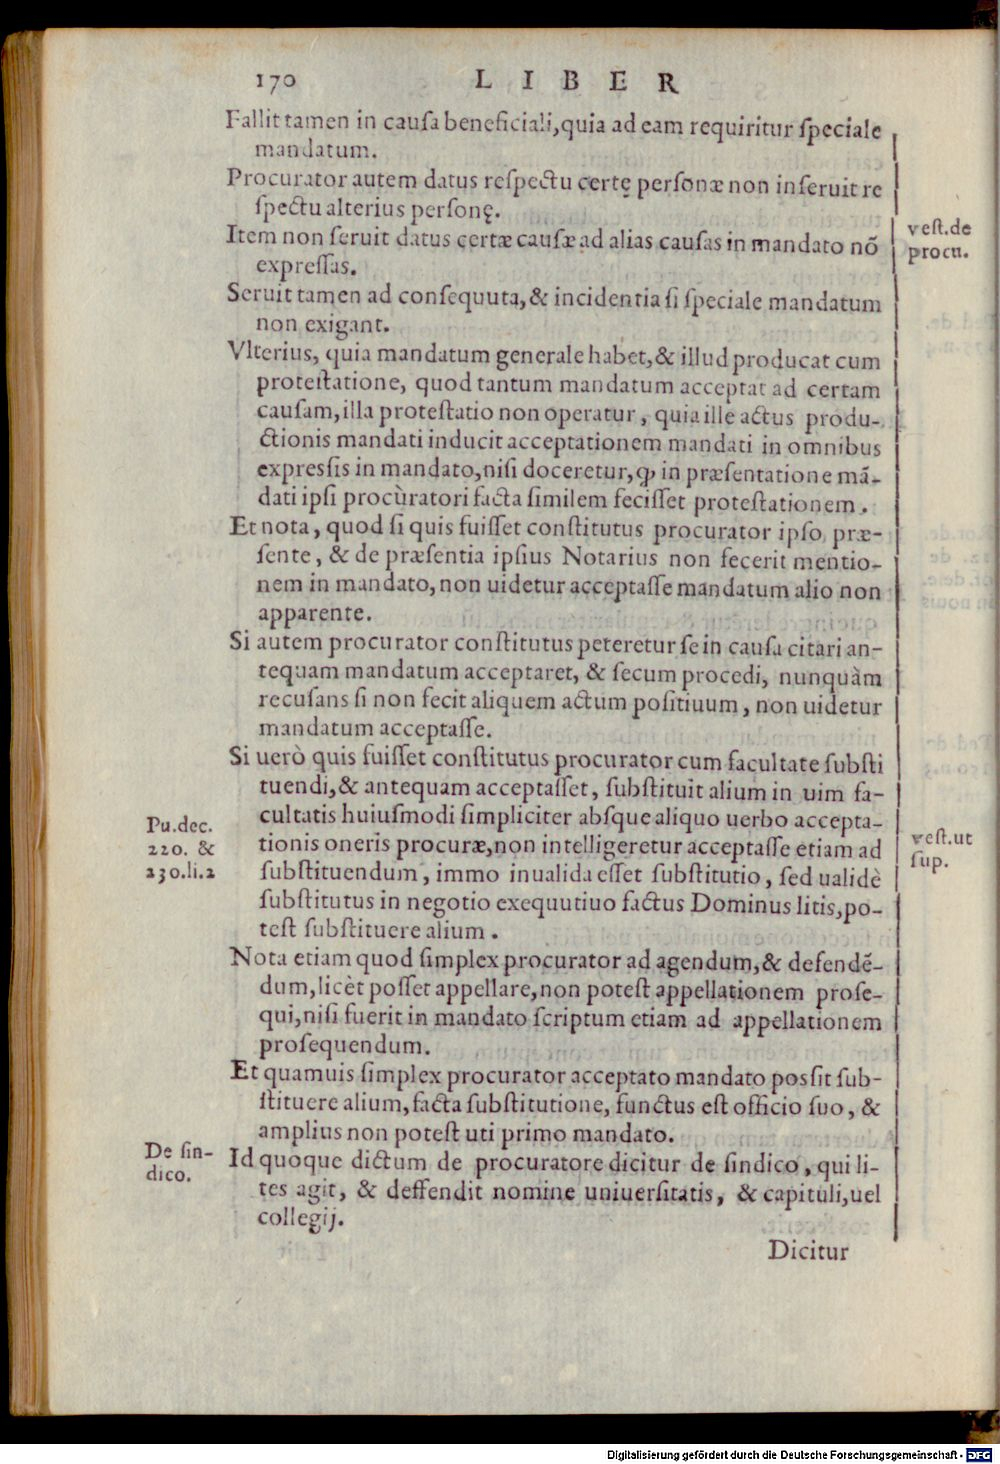 170 LIBER
Fallit tamen in cauſa beneficiali, quia ad eam requiritur ſpeciale
mandatum.
Procurator autem datus reſpectu certę perſonæ non inſeruit re
ſpectu alterius perſonę.
Item non ſeruit datus certæ cauſæ ad alias cauſas in mandato nō
expreſſas.
veſt.de
procu.
Seruit tamen ad conſequuta, & incidentia ſi ſpeciale mandatum
non exigant.
Vlterius, quia mandatum generale habet, & illud producat cum
proteſtatione, quod tantum mandatum acceptat ad certam
cauſam, illa proteſtatio non operatur, quia ille actus produ-
ctionis mandati inducit acceptationem mandati in omnibus
expreſsis in mandato, niſi doceretur, ꝙ in præſentatione mā-
dati ipſi procùratori facta ſimilem feciſſet proteſtationem.
Et nota, quod ſi quis fuiſſet conſtitutus procurator ipſo præ-
ſente, & de præſentia ipſius Notarius non fecerit mentio-
nem in mandato, non uidetur acceptaſſe mandatum alio non
apparente.
Si autem procurator conſtitutus peteretur ſe in cauſa citari an-
tequam mandatum acceptaret, & ſecum procedi, nunquàm
recuſans ſi non fecit aliquem actum poſitiuum, non uidetur
mandatum acceptaſſe.
Si uerò quis fuiſſet conſtitutus procurator cum facultate ſubſti
tuendi, & antequam acceptaſſet, ſubſtituit alium in uim fa-
cultatis huiuſmodi ſimpliciter abſque aliquo uerbo accepta-
tionis oneris procuræ, non intelligeretur acceptaſſe etiam ad
ſubſtituendum, immo inualida eſſet ſubſtitutio, ſed ualidè
ſubſtitutus in negotio exequutiuo factus Dominus litis, po-
teſt ſubſtituere alium.
Pu.dec.
220. &
230.li.2
veſt.ut
ſup.
Nota etiam quod ſimplex procurator ad agendum, & defendē-
dum, licèt poſſet appellare, non poteſt appellationem proſe-
qui, niſi fuerit in mandato ſcriptum etiam ad appellationem
proſequendum.
Et quamuis ſimplex procurator acceptato mandato poſsit ſub-
ſtituere alium, facta ſubſtitutione, functus eſt officio ſuo, &
amplius non poteſt uti primo mandato.
De ſin-
dico.
Id quoque dictum de procuratore dicitur de ſindico, qui li-
tes agit, & deffendit nomine uniuerſitatis, & capituli, uel
collegij.
Dicitur
Digitalisierung gefördert durch die Deutsche Forschungsgemeinschaft - DFG